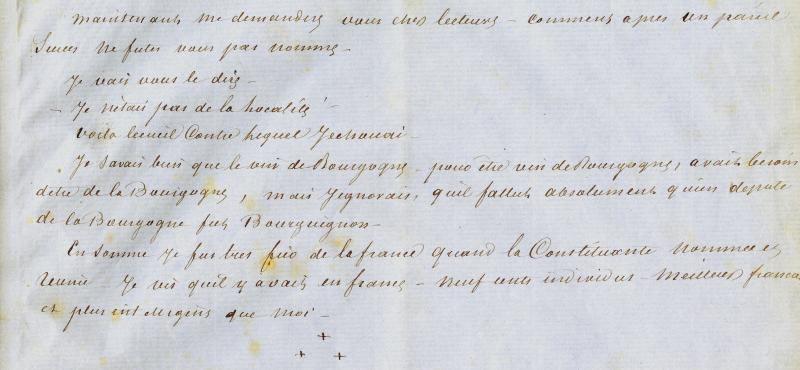 Maintenant me demanderez vous chers lecteurs – comment apres un pareil
succes ne futes vous pas nommé –
Je vais vous le dire –
– Je n'étais pas de la localité! –
Voila lecueil contre lequel Jechouai –
Je savais bien que le vin de Bourgogne – pour être vin de Bourgogne, avait besoin
detre de la Bourgogne, mais Jegnorais, quil fallut absolument qu'un deputé
de la Bourgogne fut Bourguignon –
En somme Je fus tres fier de la france quand la Constituante nommée et
reunie Je vis quil y avait en france – neuf cents individus – meilleurs francais
et plus intelligens que moi –
+
+ +